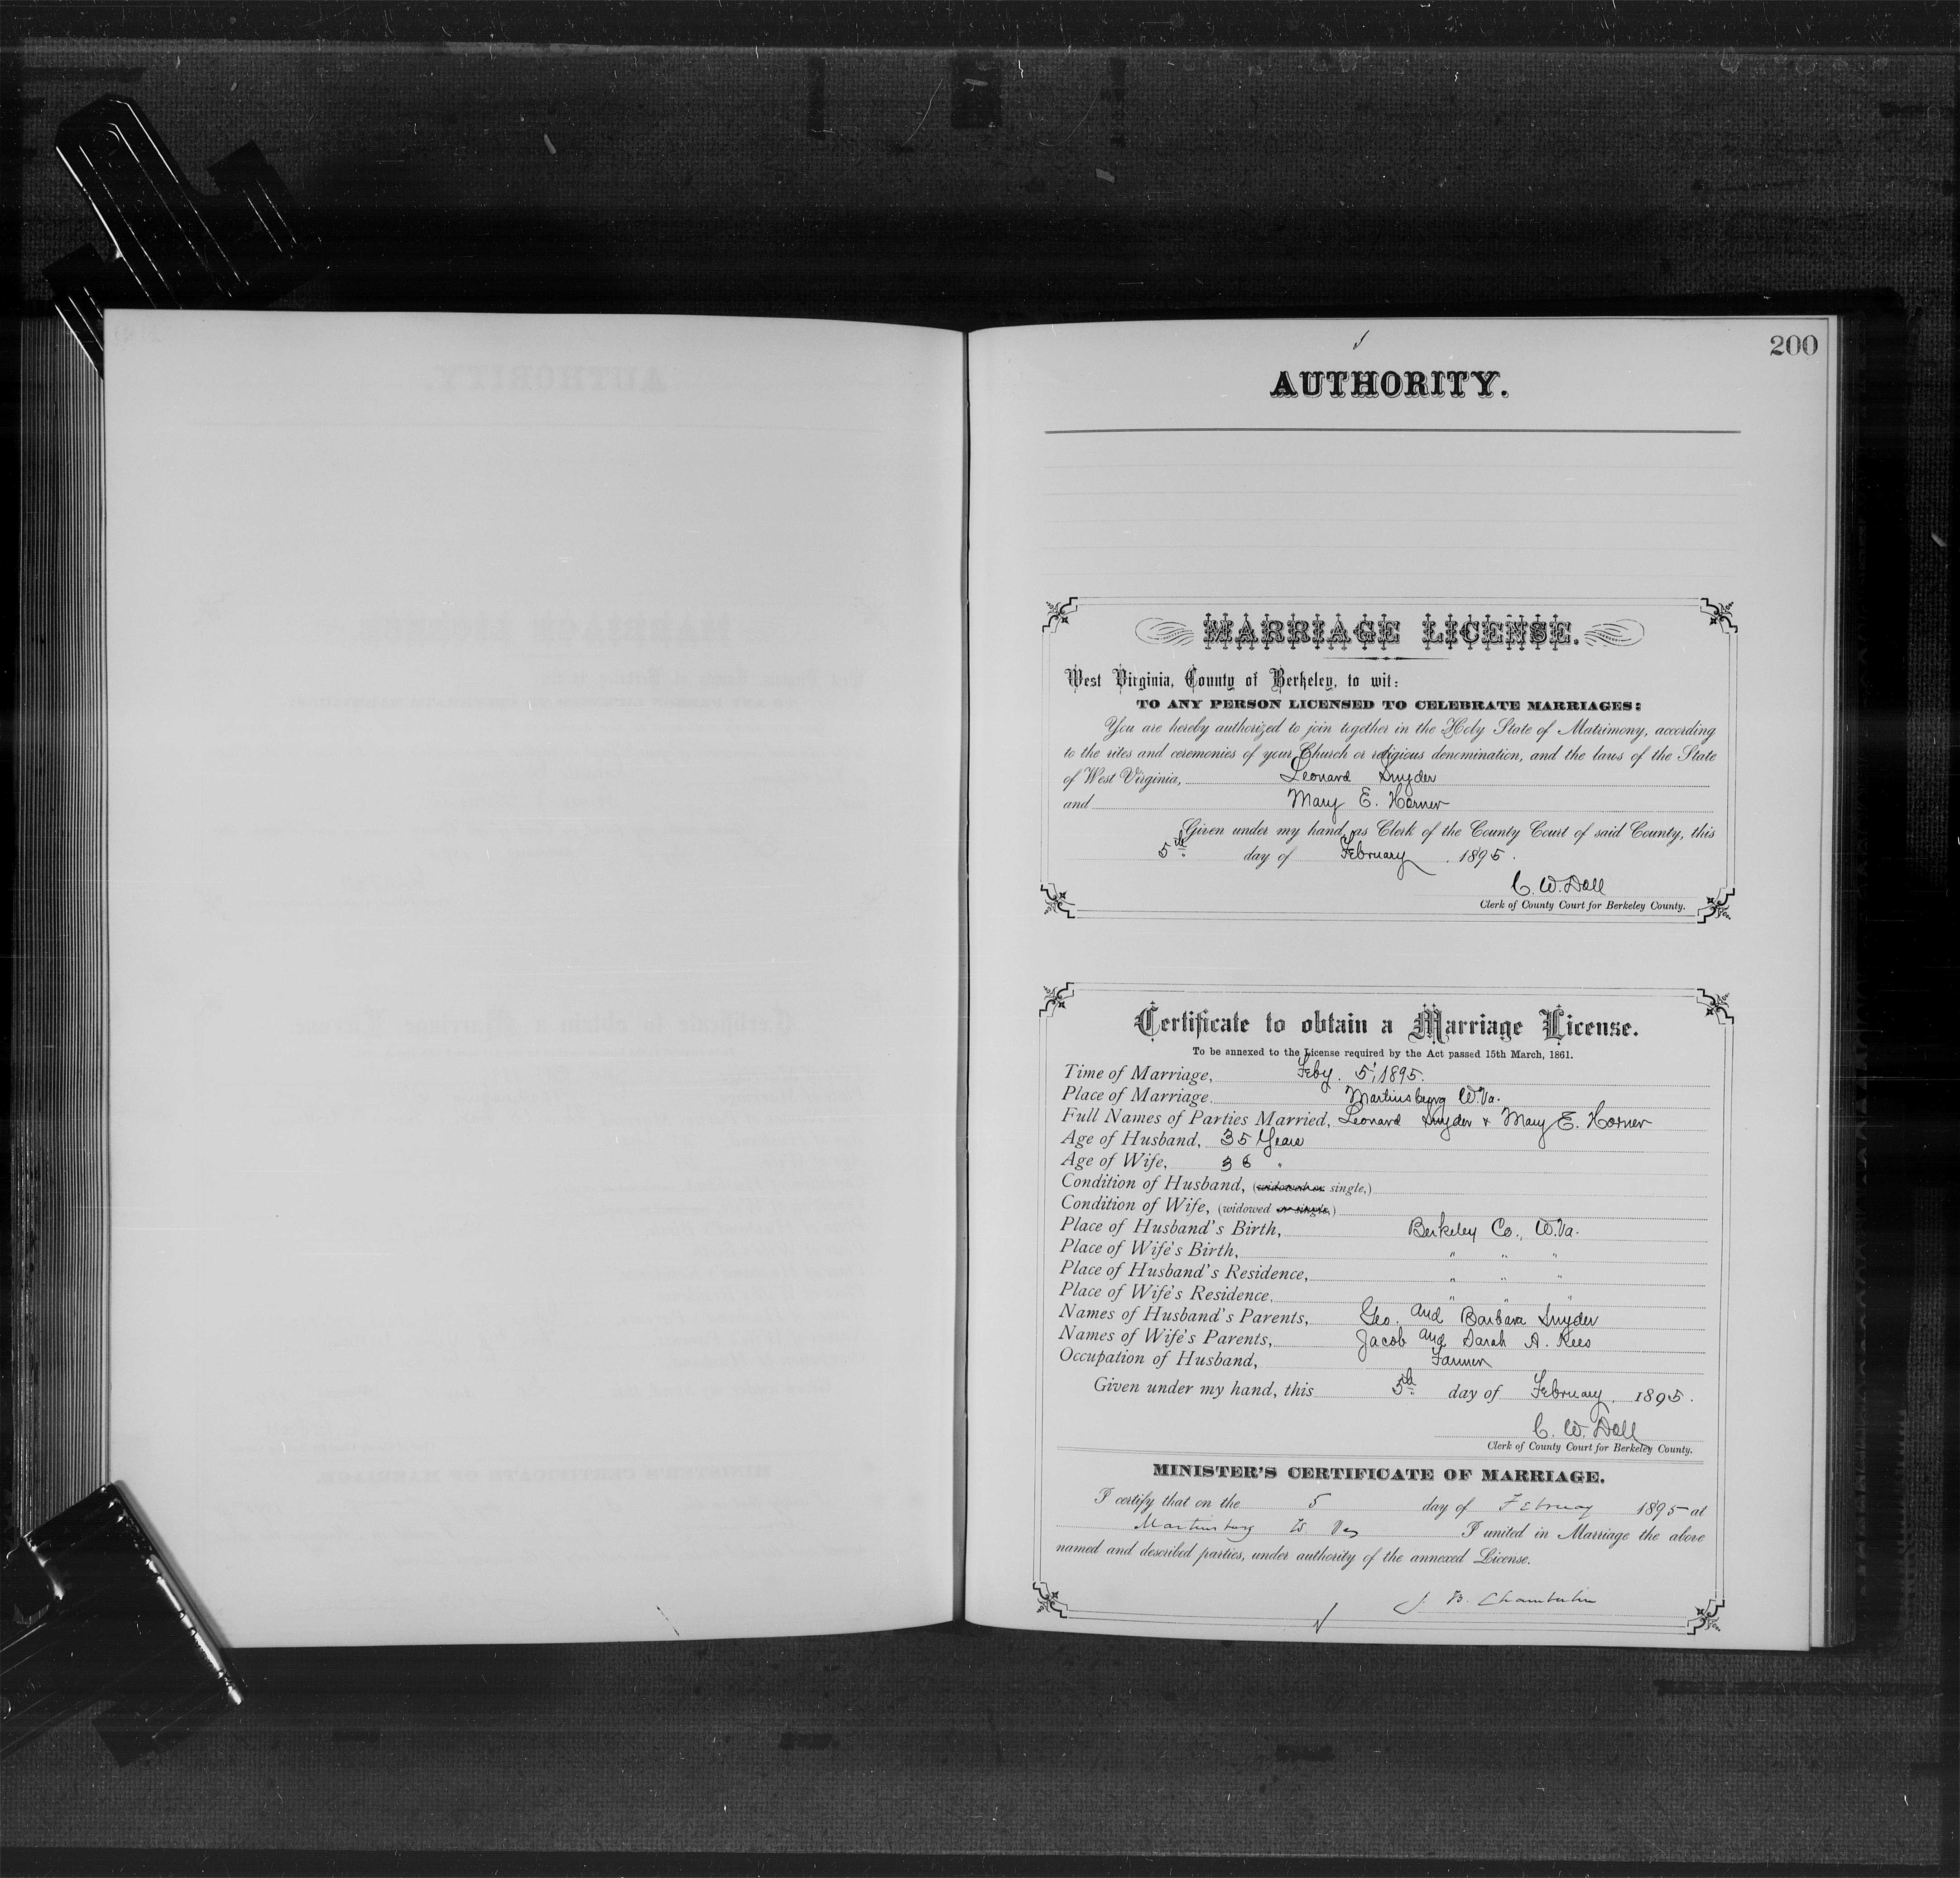 200
AUTHORITY.
MARRIAGE LICENSE.
West Virginia, County of Berkeley, to wit:
TO ANY PERSON LICENSED TO CELEBRATE MARRIAGES:
You are hereby authorized to join together in the Holy State of Matrimony, according
to the rites and ceremonies of your Church or religious denomination, and the laws of the State
of West Virginia, Leonard Snyder
and Mary E. Horner
Given under my hand, as Clerk of the County Court of said County, this
5th day of February, 1895.
C. W. Doll
Clerk of County Court for Berkeley County.
Certificate to obtain a Marriage License.
To be annexed to the License required by the Act passed 15th March, 1861.
Time of Marriage, Feby. 5, 1895.
Place of Marriage. Martinsburg W.Va.
Full Names of Parties Married, Leonard Snyder & Mary E. Horner
Age of Husband, 35 Years
Age of Wife, 36 "
Condition of Husband, (widowed or single,)
Condition of Wife, (widowed or single,)
Place of Husband's Birth, Berkeley Co., W.Va.
Place of Wife's Birth, " " "
Place of Husband's Residence, " " "
Place of Wife's Residence. " " "
Names of Husband's Parents, Geo. and Barbara Snyder
Names of Wife's Parents, Jacob and Sarah A. Kees
Occupation of Husband, Farmer
Given under my hand, this 5th day of February, 1895.
C. W. Doll
Clerk of County Court for Berkeley County.
MINISTER'S CERTIFICATE OF MARRIAGE.
I certify that on the 5 day of February 1895 at
Martinsburg W Va I united in Marriage the above
named and described parties, under authority of the annexed License.
J. B. Chamberlin